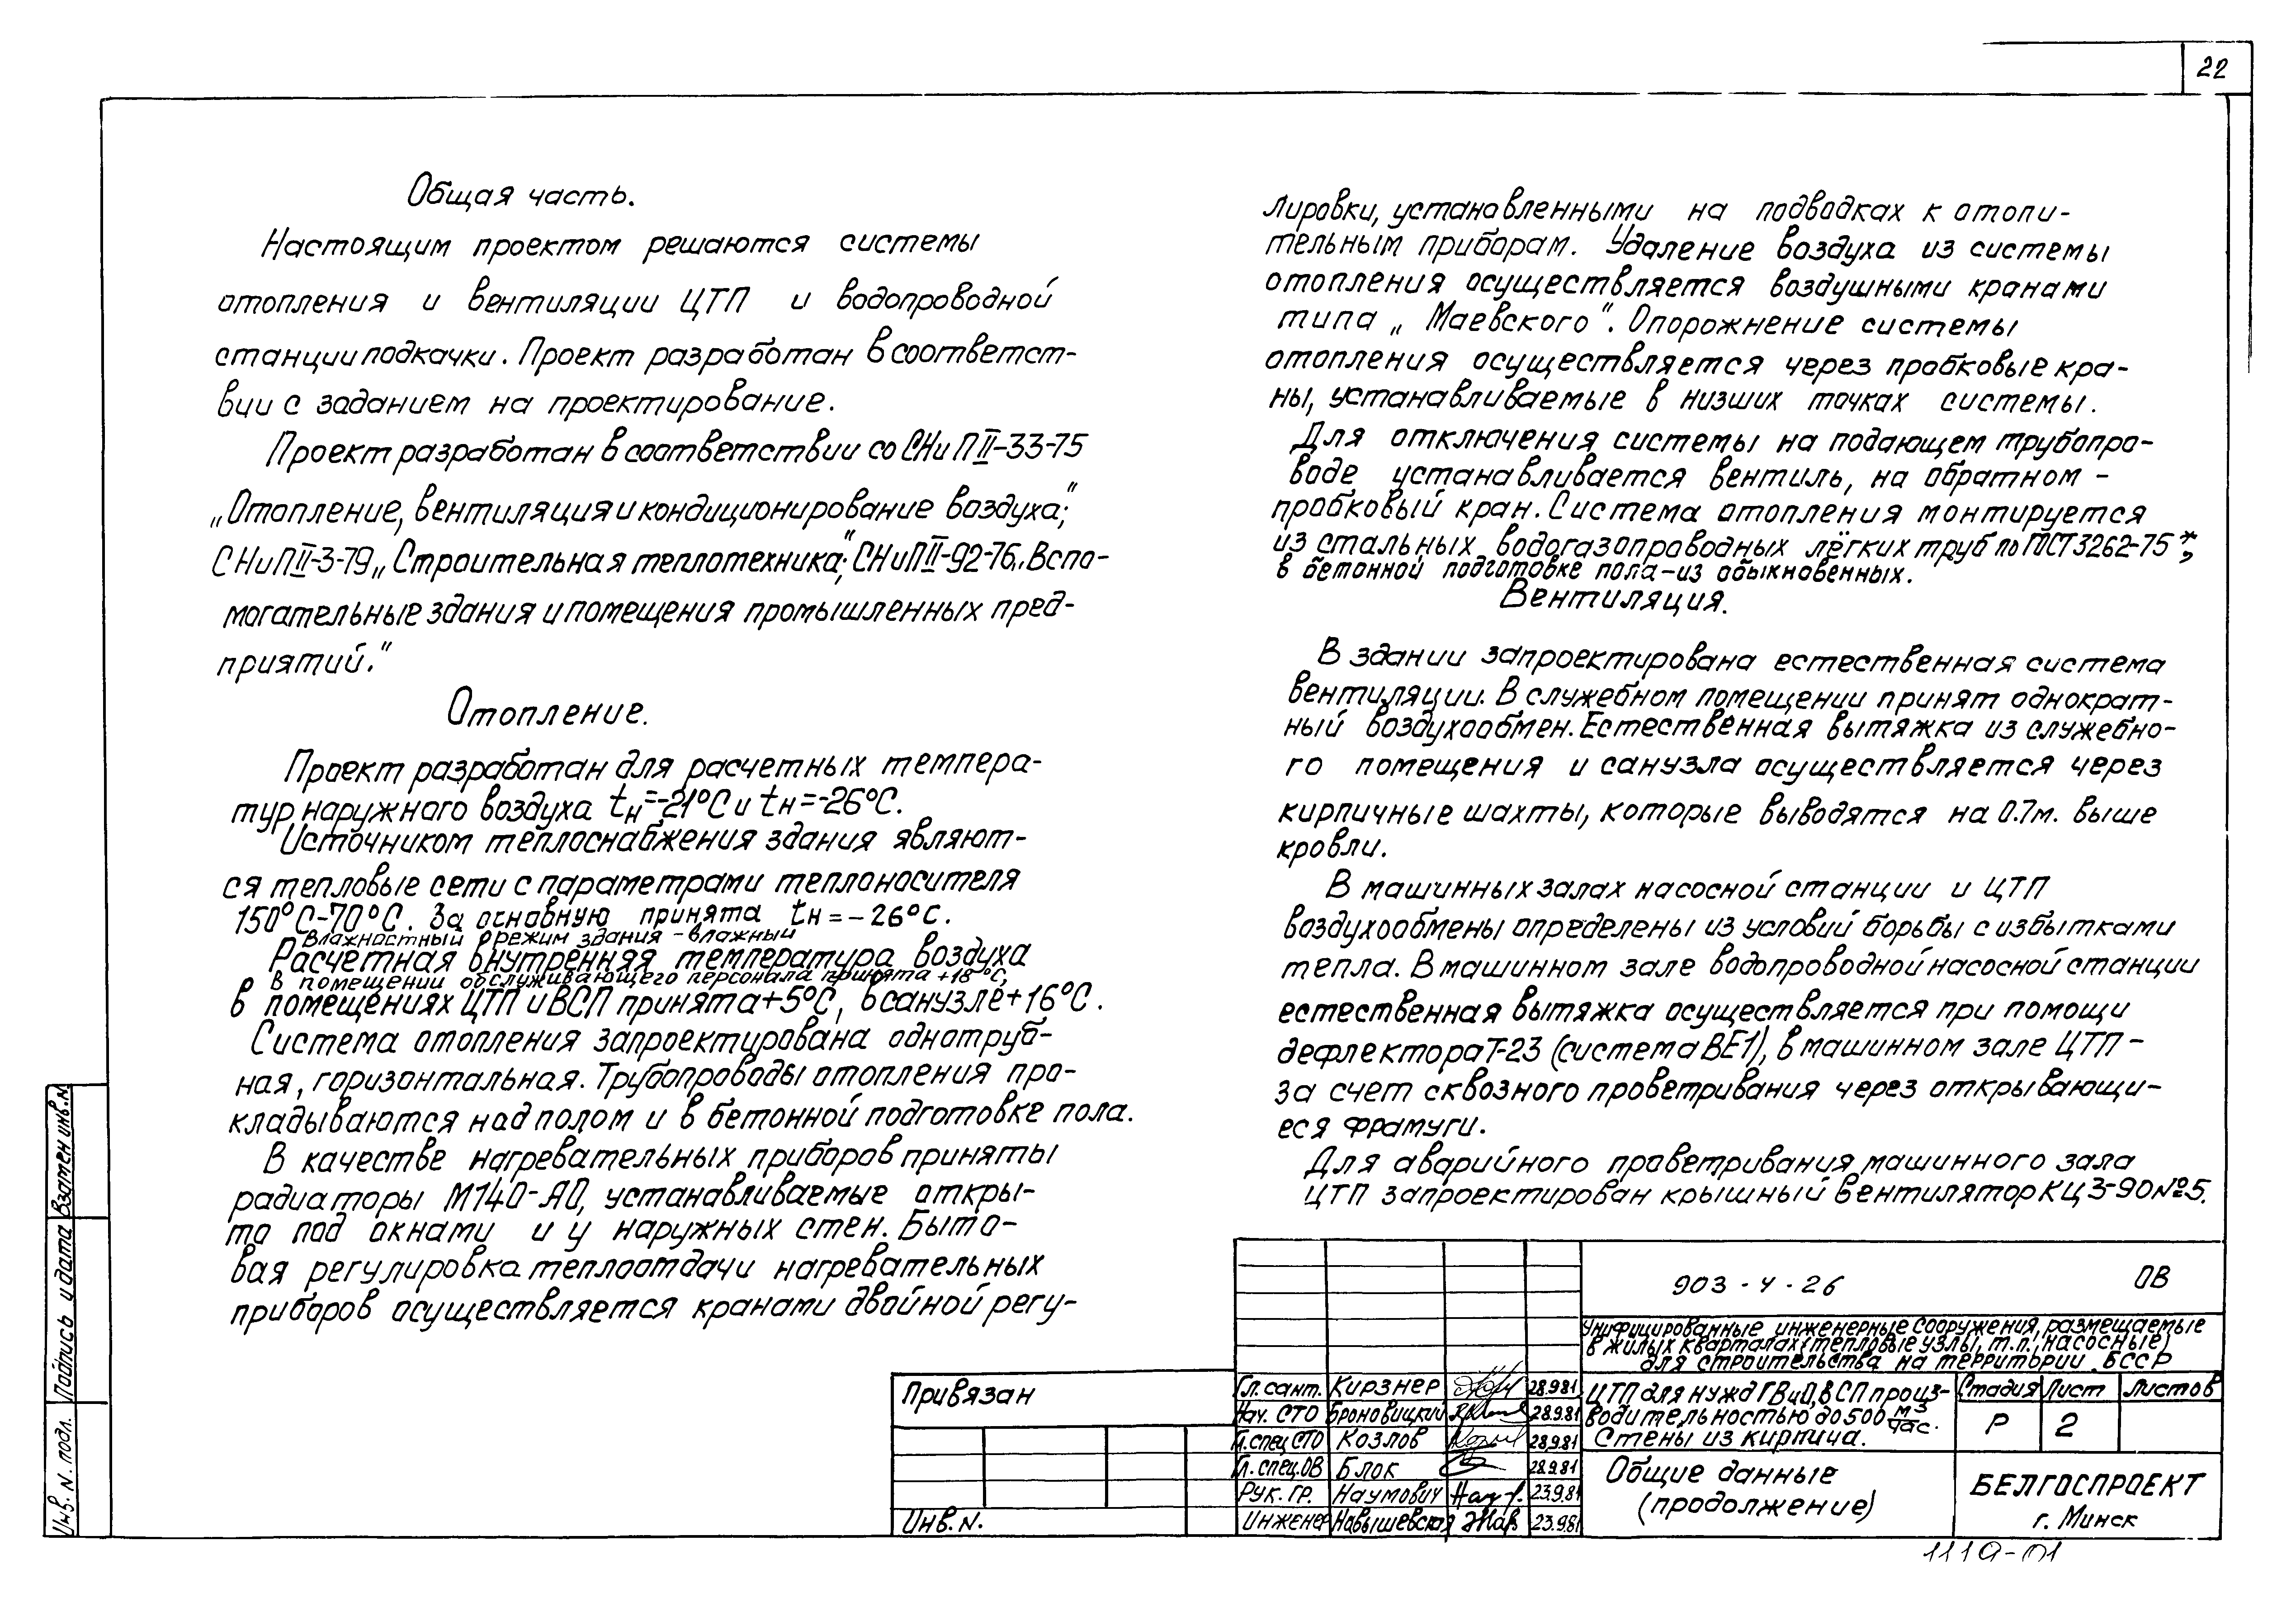 22
Общая часть.
Настоящим проектом решаются системы
отопления и вентиляции ЦТП и водопроводной
станции подкачки. Проект разработан в соответст-
вии с заданием на проектирование.
Проект разработан в соответствии со СНиП II-33-75
„Отопление, вентиляция и кондиционирование воздуха;"
СНиП II-3-79 „Строительная теплотехника;" СНиП II-92-76 „Вспо-
могательные здания и помещения промышленных пред-
приятий."
Отопление.
Проект разработан для расчетных темпера-
тур наружного воздуха tн=-21°С и tн=-26°С.
Источником теплоснабжения здания являют-
ся тепловые сети с параметрами теплоносителя
150°С-70°С. За основную принята tн=-26°С.
Влажностный режим здания - влажный
Расчетная внутренняя температура воздуха
в помещении обслуживающего персонала принята +18°С,
в помещениях ЦТП и ВСП принята +5°С, в санузле +16°С.
Система отопления запроектирована однотруб-
ная, горизонтальная. Трубопроводы отопления про-
кладываются над полом и в бетонной подготовке пола.
В качестве нагревательных приборов приняты
радиаторы М140-АО, устанавливаемые откры-
то под окнами и у наружных стен. Быто-
вая регулировка теплоотдачи нагревательных
приборов осуществляется кранами двойной регу-
лировки, установленными на подводках к отопи-
тельным приборам. Удаление воздуха из системы
отопления осуществляется воздушными кранами
типа „Маевского". Опорожнение системы
отопления осуществляется через пробковые кра-
ны, устанавливаемые в низших точках системы.
Для отключения системы на подающем трубопро-
воде устанавливается вентиль, на обратном -
пробковый кран. Система отопления монтируется
из стальных водогазопроводных лёгких труб по ГОСТ 3262-75*,
в бетонной подготовке пола - из обыкновенных.
Вентиляция.
В здании запроектирована естественная система
вентиляции. В служебном помещении принят однократ-
ный воздухообмен. Естественная вытяжка из служебно-
го помещения и санузла осуществляется через
кирпичные шахты, которые выводятся на 0.7м. выше
кровли.
В машинных залах насосной станции и ЦТП
воздухообмены определены из условий борьбы с избытками
тепла. В машинном зале водопроводной насосной станции
естественная вытяжка осуществляется при помощи
дефлектора Т-23 (система ВЕ1), в машинном зале ЦТП -
за счет сквозного проветривания через открывающи-
еся фрамуги.
Для аварийного проветривания машинного зала
ЦТП запроектирован крышный вентилятор КЦ3-90 №5.
903-4-26 ОВ
Унифицированные инженерные сооружения, размещаемые
в жилых кварталах (тепловые узлы, т.п., насосные)
для строительства на территории БССР
ЦТП для нужд ГВ и О, ВСП произ-
водительностью до 500 м3/час.
Стены из кирпича.
Стадия Лист Листов
Р 2
Общие данные
(продолжение)
БЕЛГОСПРОЕКТ
г. Минск
Гл.сант. Кирзнер 28.9.81
Нач. СТО Броновицкий 28.9.81
Гл.спец СТО Козлов 28.9.81
Гл.спец.ОВ Блок 28.9.81
Рук.гр. Наумович 23.9.81
Инженер Навышевская 23.9.81
Привязан
Инв.N.
Инв.N.подл. Подпись и дата Взамен инв.N
1119-01